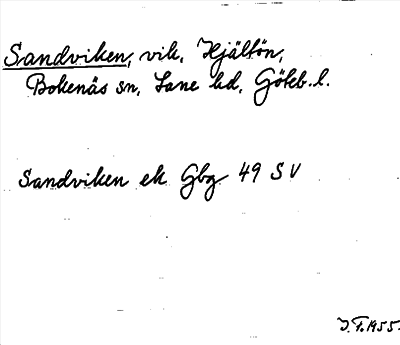 Sandviken, vik, Hjältön,
Bokenäs sn, Lane hd, Göteb. l.
Sandviken ek Gbg 49 SV
J. F. 1955.